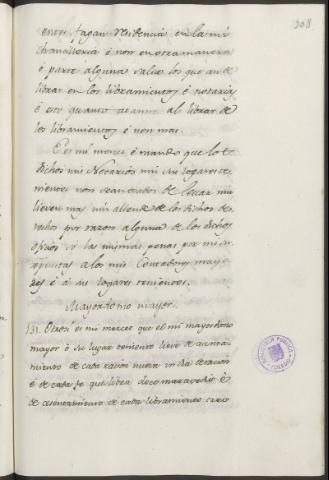 208
entre fagan residencia en la mi
chancilleria é non en otra manera
é parte alguna salvo los que an de
librar en los libramientos é notaria
é esto quanto atanne al librar de
los libramientos é non mas.
E es mi merced é mando que los
dichos mis Notarios nin sus logares te-
nientes non sean osados de llevar nin
lieven mas nin allende de los dichos de-
rechos por razon alguna de los dichos
oficios so las mismas penas por mi im-
puestas a los mis Contadores mayo-
res é á sus logares tenientes.
Mayordomo mayor.
131. Otrosi es mi merced que el mi mayordomo
mayor é su lugar teniente lieve de asenta-
miento de cada racion nueva
é de cada que libra doce maravedis é
de asentamiento de cada libramiento
BIBLIOTECA PUBLICA
TOLEDO